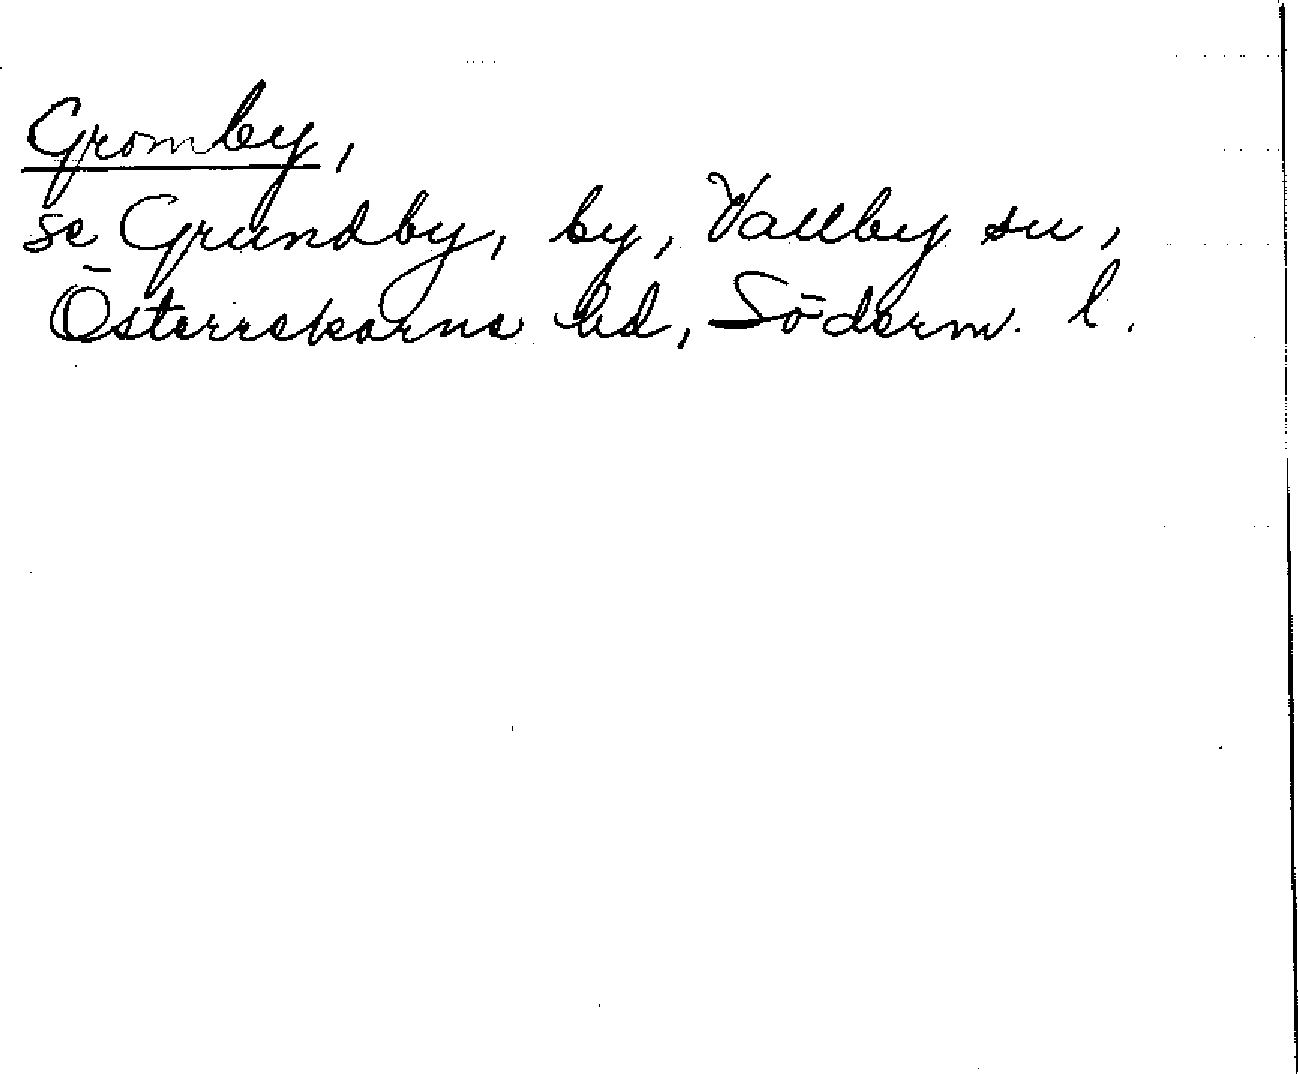 Gromby,
se Grundby, by, Vallby sn,
Österrekarne hd, Söderm. l.